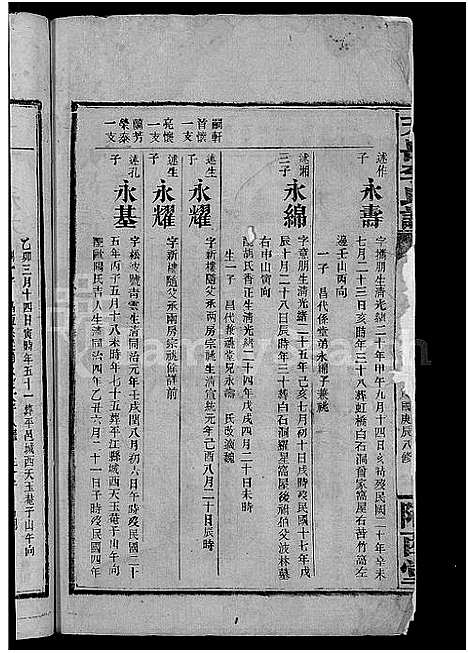 述作子
永壽
字攜朋生清光緒二十年甲午九月十四日亥時歿民國二十年辛未
七月二十三日亥時年三十八葬虹橋白石洞魯家窩屋右苦竹高左
邊壬山丙向
一子 昌代係堂弟永綿子兼祧
述湘三子
永綿
字章朋生清光緒二十五年己亥七月初十日戌時歿民國十七年戊
辰十月二十八日辰時年三十葬白石洞羅星窩屋後祖伯父波林墓
右申山寅向
配胡氏香正生清光緒二十四年戊戌四月二十日未時
生一子 昌代兼祧堂兄永壽 氏改適魏
述生子
永耀
字新樓隨父承兩房宗祧生清宣統元年己酉八月二十日辰時
述生子
永耀
字新樓隨父承兩房宗祧詳前
述孔子
永基
字松波號青雲生清同治元年壬戌閏八月初六日午時歿民國二十
五年丙子五月十八未時年七十五葬平江縣城西天玉菴子山午向
配歐陽氏吉人生清同治四年乙丑六月二十一日子時歿民國四年
嗣軒首懷一支
亮懷一支
蘭芳榮泰一支
乙卯三月十四日寅時年五十一葬平邑城西天玉菴子山午向